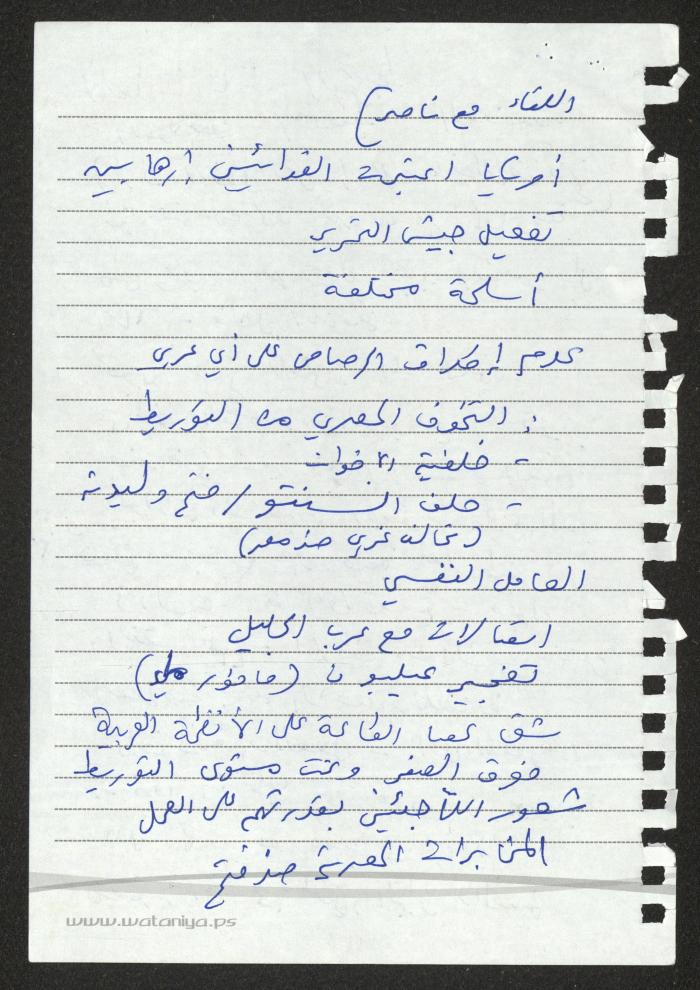 اللقاء مع ناصر)
أوروبا اعتبرت الفدائيين إرهابيين
تفعيل جيش التحرير
أسلحة مختلفة
عدم إطلاق الرصاص على أي عربي
: التخوف المصري من التوريط
- خلفية الاخوان
- حلف السنتو / فتح وليدته
(تحالف غربي ضد مصر)
العامل النفسي
اتصالات مع عرب الجليل
تفجير عيلبون
شق عصا الطاعة على الأنظمة العربية
فوق الصفر وتحت مستوى التوريط
شعور اللاجئين بقدرتهم على العمل
المخابرات المصرية ضد فتح
www.wataniya.ps